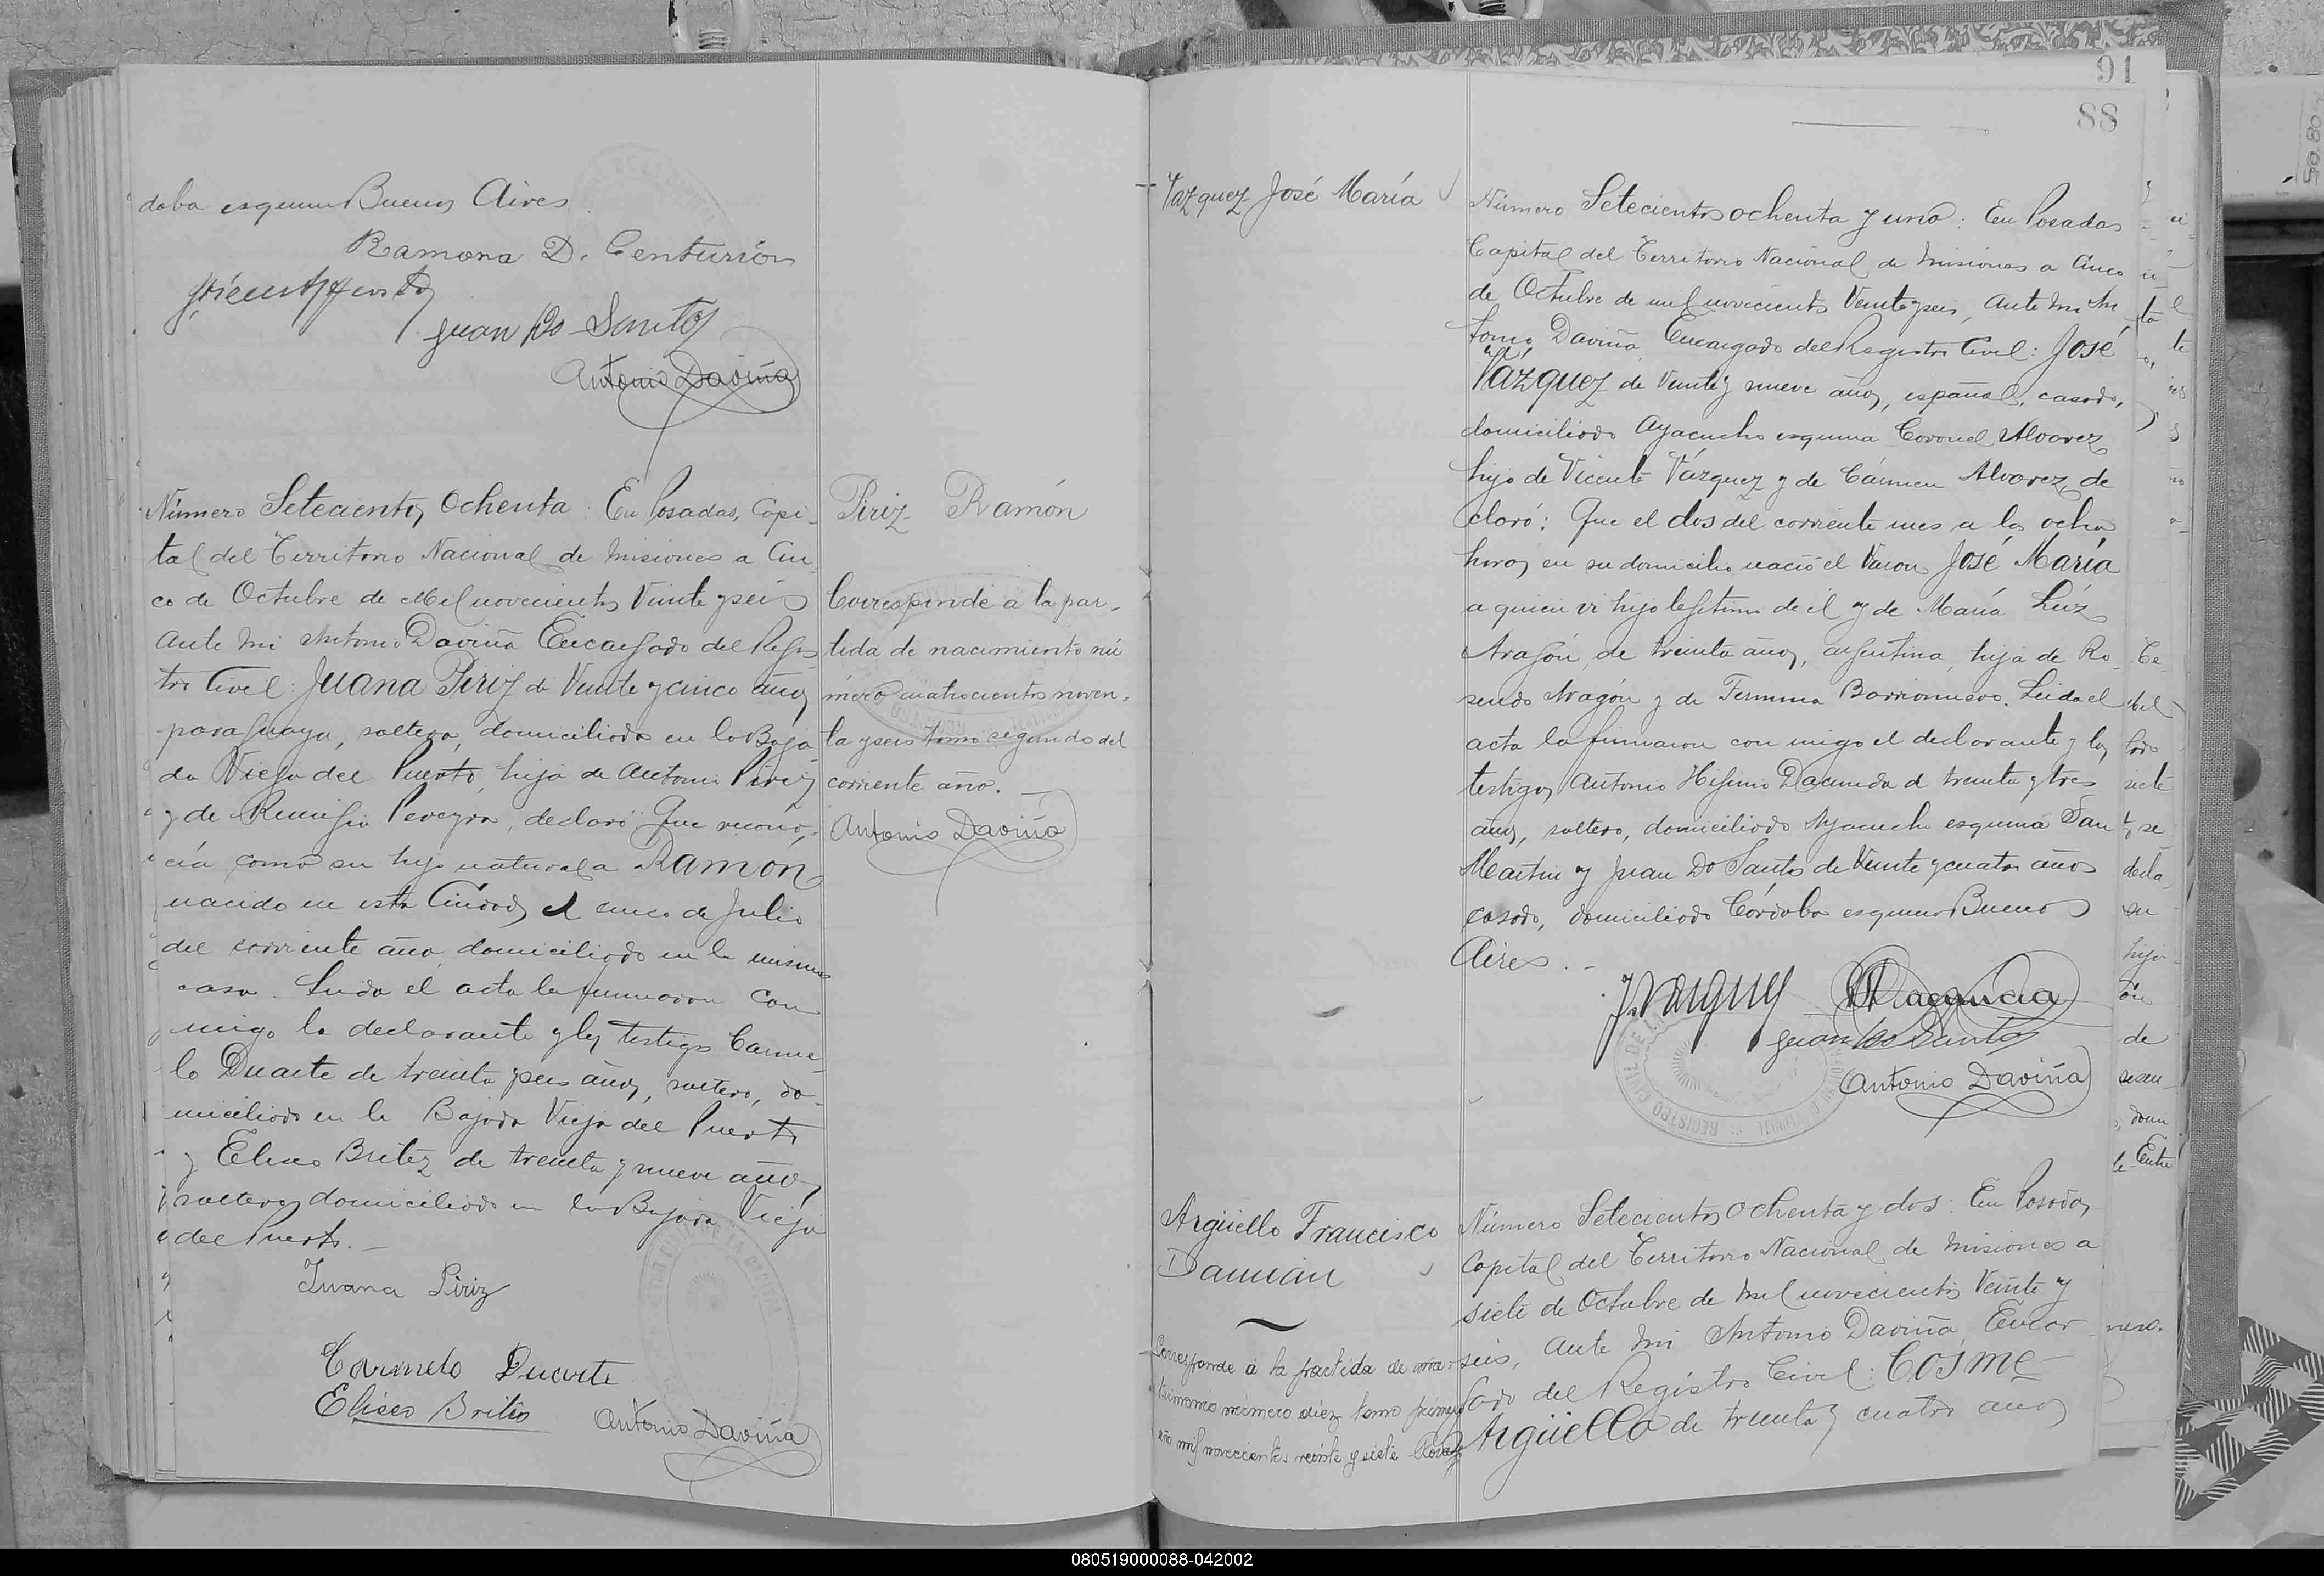 daba esquina Buenos Aires
Ramona D. Centurión
Juan Do Santos
Antonio Daviña
Número Setecientos Ochenta: En Posadas, Capi-
tal del Territorio Nacional de Misiones a Cin-
co de Octubre de Mil novecientos Veinte y seis
ante mi Antonio Daviña Encargado del Regis
tro Civil: Juana Piriz de Veinte y cinco años
paraguaya, soltera, domiciliada en la Baja
da Vieja del Puerto, hija de Antonio Piriz
y de Remigia Pereyra, declaró: Que recono-
cía como su hijo natural a Ramón
nacido en esta Ciudad, el cinco de Julio
del corriente año, domiciliado en la misma
casa. Leida el acta la firmaron con
migo la declarante y los testigos Carme-
lo Duarte de treinta y seis años, soltero, do-
miciliado en la Bajada Vieja del Puerto
y Eliseo Britez de treinta y nueve años,
soltero, domiciliado en la Bajada Vieja
del Puerto.—
Juana Piriz
Carmelo Duarte
Eliseo Britez
Antonio Daviña
Piriz Ramón
Corresponde a la par-
tida de nacimiento nú
mero cuatrocientos noven-
ta y seis tomo segundo del
corriente año.—
Antonio Daviña
91
88
Vazquez José María
Número Setecientos ochenta y uno: En Posadas
Capital del Territorio Nacional de Misiones a Cinco
de Octubre de mil novecientos Veinte y seis, ante mi An
tonio Daviña Encargado del Registro Civil: José
Vázquez de Veinte y nueve años, español, casado,
domiciliado Ayacucho esquina Coronel Alvarez
hijo de Vicente Vázquez y de Cármen Alvarez, de
claró: Que el dos del corriente mes a las ocho
horas en su domicilio nació el Varon José María
a quien vi hijo legítimo de él y de María Luz
Aragón, de treinta años, argentina, hija de Ro-
sendo Aragón y de Fermina Barrionuevo. Leida el
acta la firmaron con migo el declarante y los
testigos Antonio Higinio Dacunda de treinta y tres
años, soltero, domiciliado Ayacucho esquina San
Martin y Juan Do Santos de Veinte y cuatro años
casado, domiciliado Córdoba esquina Buenos
Aires.—
J. Vazquez
Juan Do Santos
Antonio Daviña
Argüello Francisco
Damian
Corresponde á la partida de ma-
trimonio número diez tomo primero
año mil novecientos veinte y siete
Número Setecientos ochenta y dos: En Posadas,
Capital del Territorio Nacional de Misiones a
siete de Octubre de Mil novecientos Veinte y
seis, ante mi Antonio Daviña, Encar-
gado del Registro Civil: Cosme
Argüello de treinta y cuatro años
080519000088-042002